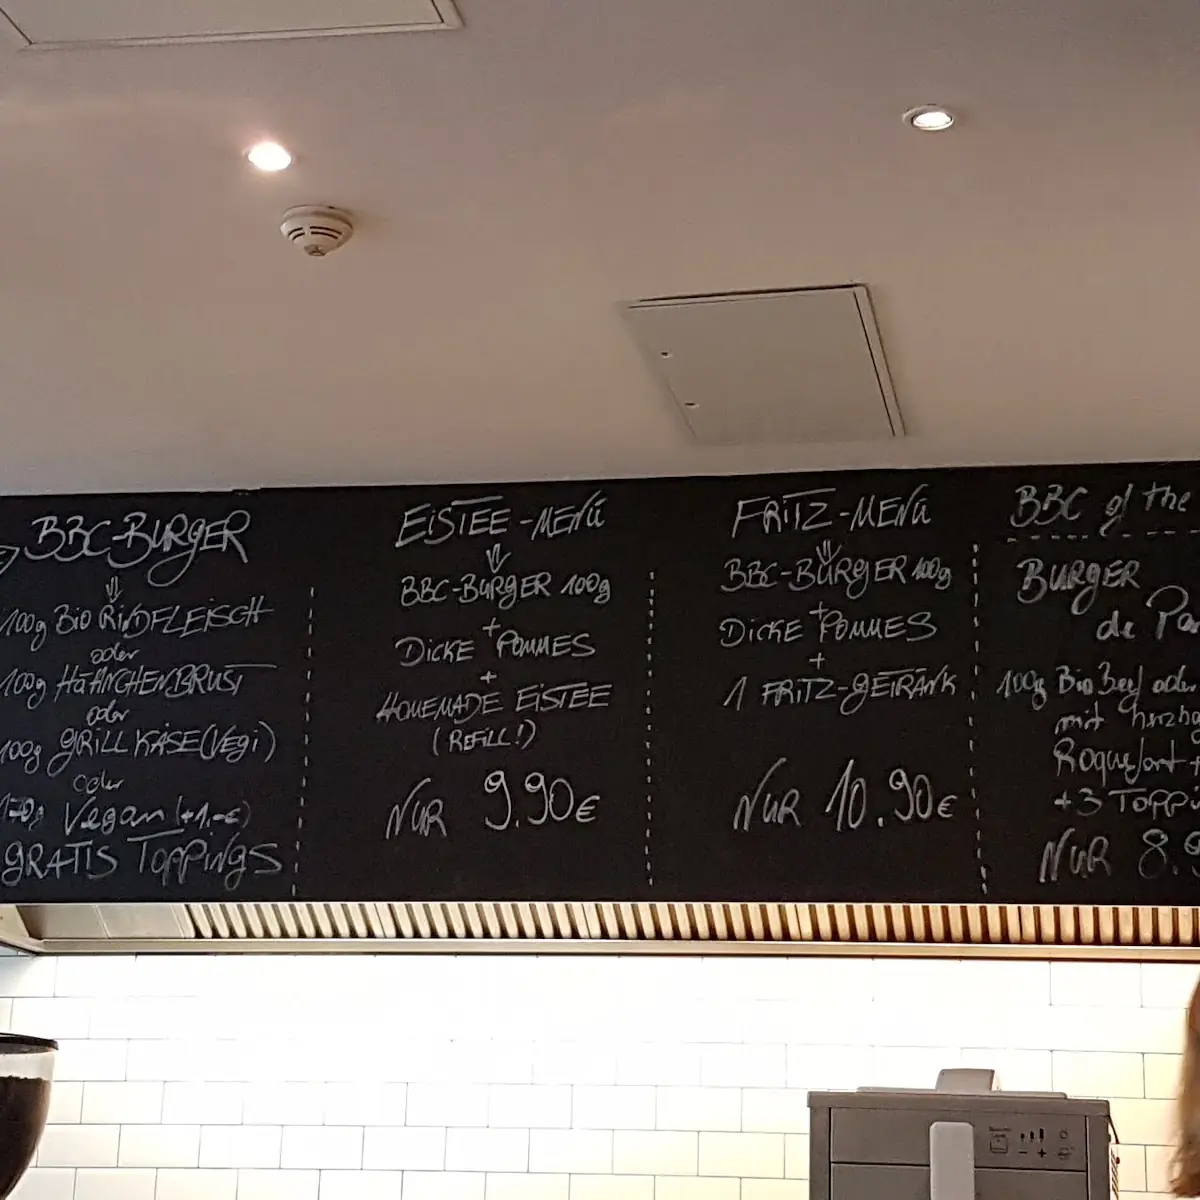 BBC-BURGER
100g Bio RINDFLEISCH
oder
100g HÄHNCHENBRUST
oder
100g GRILLKÄSE (VEGI)
oder
Vegan (+1.-€)
GRATIS TOPPINGS
EISTEE-MENÜ
BBC-BURGER 100g
+
DICKE POMMES
+
HOMEMADE EISTEE
(REFILL!)
NUR 9.90€
FRITZ-MENÜ
BBC-BURGER 100g
+
DICKE POMMES
+
1 FRITZ-GETRÄNK
NUR 10.90€
BBC of the
BURGER
de Par
100g Bio Beef oder
mit herzh
Roquefort +
+3 TOPP
NUR 8.9